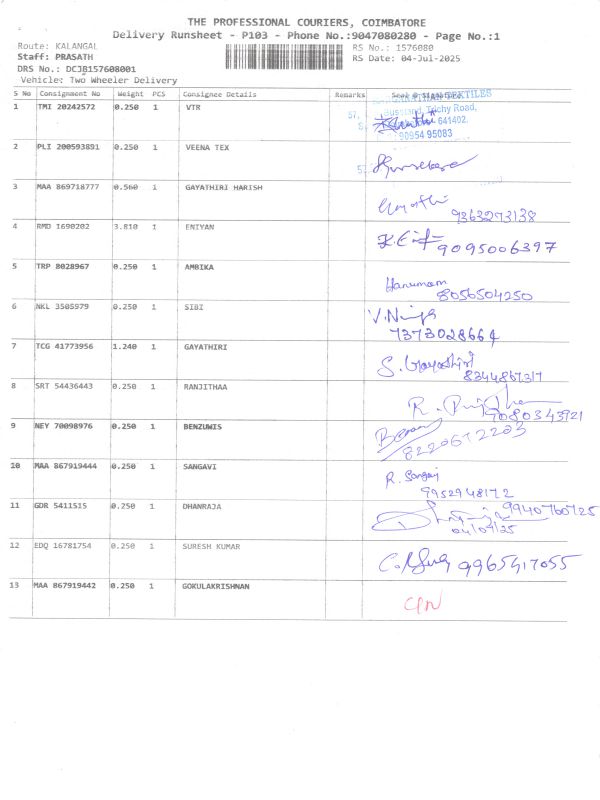 THE PROFESSIONAL COURIERS, COIMBATORE
Delivery Runsheet - P103 - Phone No.:9047080280 - Page No.:1
Route: KALANGAL RS No.: 1576080
Staff: PRASATH RS Date: 04-Jul-2025
DRS No.: DCJB157608001
Vehicle: Two Wheeler Delivery
S No Consignment No Weight PCS Consignee Details Remarks
TEXTILES
1 TMI 20242572 0.250 1 VTR
Trichy Road,
641402.
90954 95083
2 PLI 200593891 0.250 1 VEENA TEX
3 MAA 869718777 0.560 1 GAYATHIRI HARISH
Gayathi
9363273138
4 RMD 1690202 3.810 1 ENIYAN
9095006397
5 TRP 8028967 0.250 1 AMBIKA
Hanumam
8056504250
6 NKL 3505979 0.250 1 SIBI
7373028664
7 TCG 41773956 1.240 1 GAYATHIRI
S. Gayathiri
8344867317
8 SRT 54436443 0.250 1 RANJITHAA
9080343921
9 NEY 70098976 0.250 1 BENZUWIS
8220672203
10 MAA 867919444 0.250 1 SANGAVI
R. Sangavi
9952948172
11 GDR 5411515 0.250 1 DHANRAJA
9940760725
04/07/25
12 EDQ 16781754 0.250 1 SURESH KUMAR
9965417055
13 MAA 867919442 0.250 1 GOKULAKRISHNAN